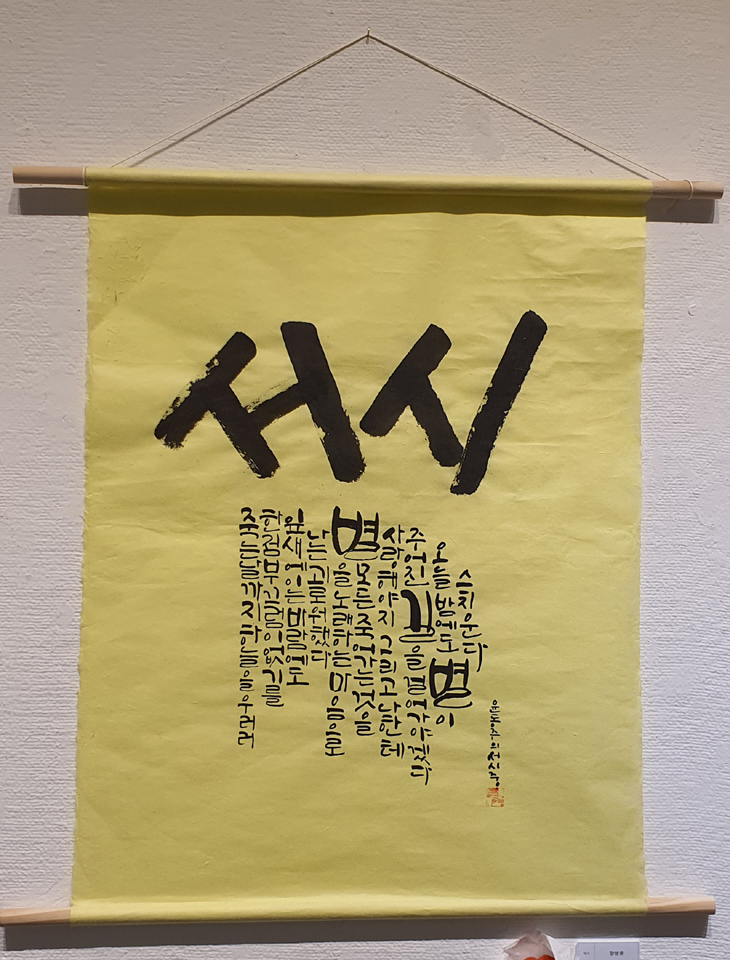 서시
죽는날까지 하늘을 우러러
한점 부끄럼이 없기를
잎새에 이는 바람에도
나는 괴로워했다
별을 노래하는 마음으로
모든 죽어가는것을
사랑해야지 그리고 나한테
주어진 길을 걸어가야겠다
오늘밤에도 별이
스치운다
윤동주의 서시 중